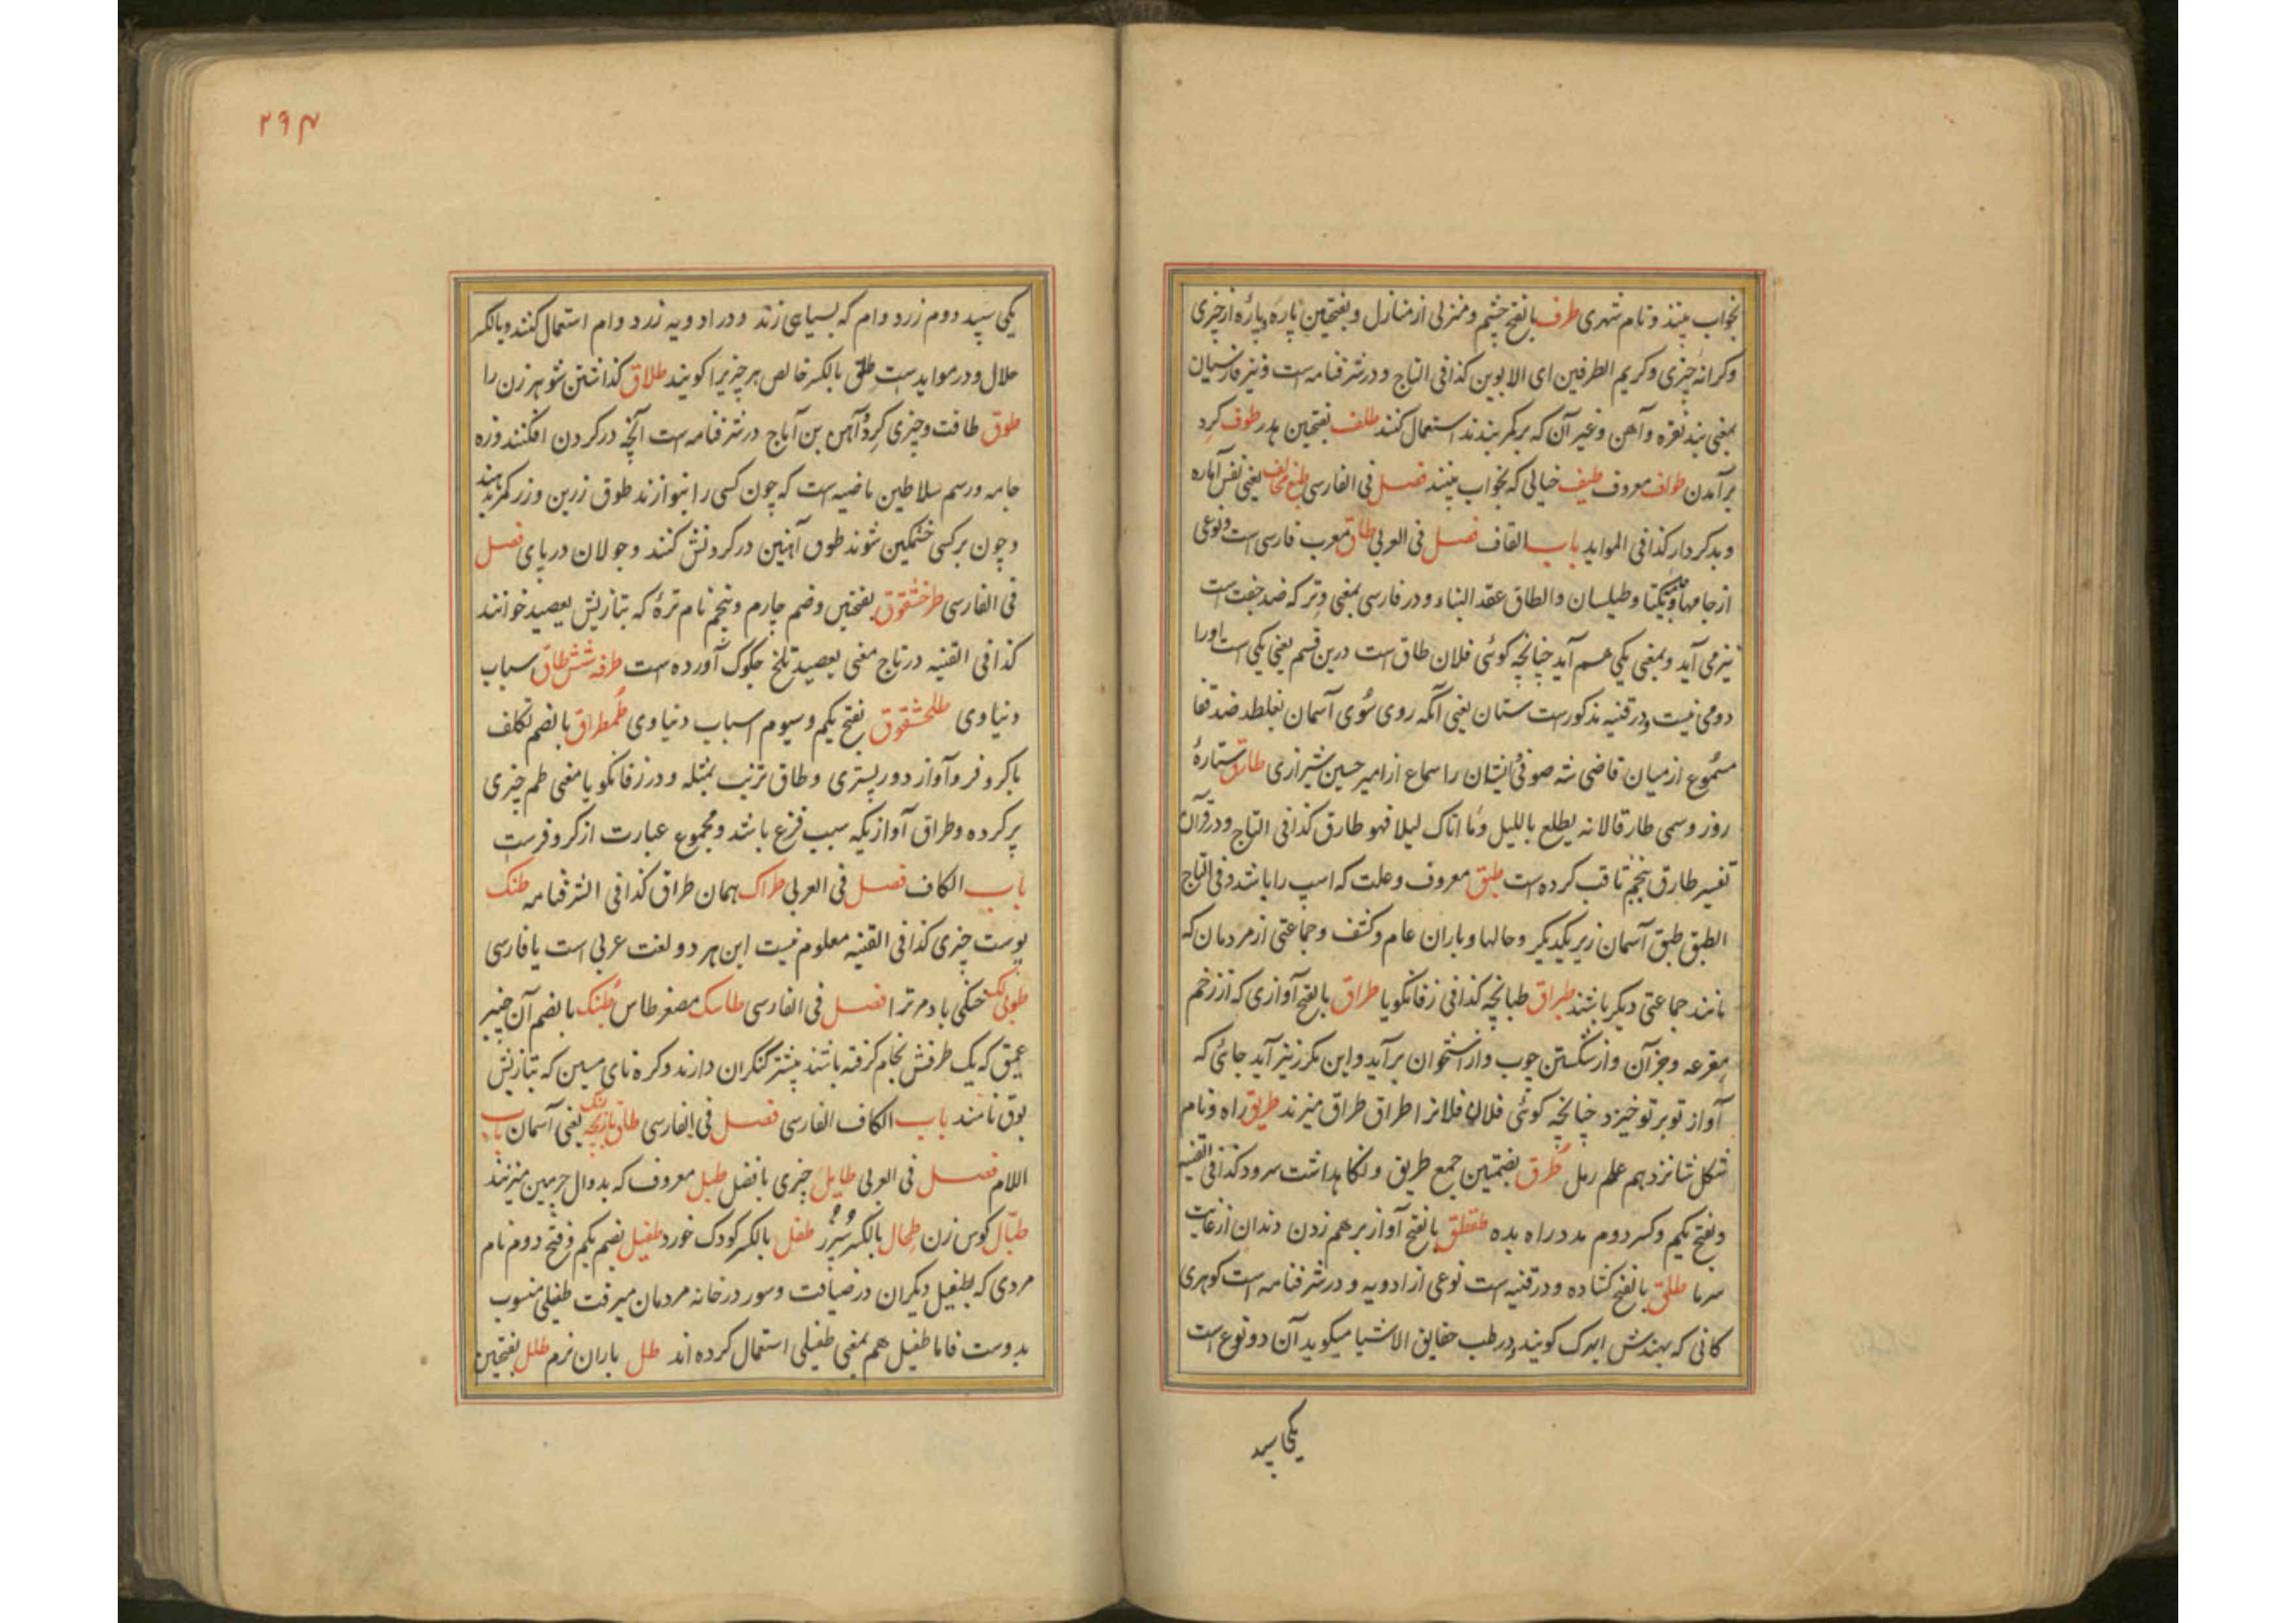 بخواب بینند و نام شهری طرف بالفتح چشم و منزلی از منازل و بفتحتین پاره و پاره از چیزی
و کرانه چیزی و کریم الطرفین ای الابوین کذا فی التاج و در شرفنامه است و نیز فارسیان
بمعنی بند نقره و آهن و غیر آن که بر کمر بندند استعمال کنند طلف بفتحتین هدر طوف کرد
برآمدن طواف معروف طیف خیالی که بخواب بینند فصل فی الفارسی طبع مخالف یعنی نفس اماره
و بدکردار کذا فی الموايد باب القاف فصل فی العربی طاق معرب فارسی است و نوعی
از جامها و یکتا و طیلسان والطاق عقد البناء و در فارسی بمعنی وتر که ضد جفت است
نیز می آید و بمعنی یکی هم آید چنانچه کوئی فلان طاق است درین قسم یعنی یکی است او را
دومی نیست و در قنیه مذکور است ستان یعنی آنکه روی سوی آسمان بغلطد ضد قفا
مسموع از میان قاضی شه صوفی ایشان را سماع از امیر حسین شیرازی طارق ستارۀ
روز و سمی طارقا لانه یطلع باللیل و ما اتاک لیلا فهو طارق کذا فی التاج و در قرآن
تفسیر طارق بنجم ثاقب کرده است طبق معروف و علت که اسپ را باشد و فی التاج
الطبق طبق آسمان زیر یکدیکر و حالها و باران عام و کشف و جماعتی از مردمان که
مانند جماعتی دیکر باشند طبراق طبانچه کذا فی زفانکویا طراق بالفتح آوازی که از زخم
مقرعه و جز آن و از شکستن چوب و از استخوان برآید و این مکرر نیز آید جائی که
آواز تو بر تو خیزد چنانچه کوئی فلان فلانرا طراق طراق میزند طریق راه و نام
شکل شانزدهم علم رمل طرق بضمتین جمع طریق و نکاهداشت سرود کذا فی القنیه
و بفتح یکم و کسر دوم مدد راه بده طقطق بالفتح آواز برهم زدن دندان از غایت
سرما طلق بالفتح کشاده و در قنیه است نوعی از ادویه و در شرفنامه است کوهری
کانی که بهندش ابرک کویند و در طب حقایق الاشیا میکوید آن دو نوع است
یکی سپید
۲۹۴
یکی سپید دوم زرد وام که بسیاهی زند و در ادویه زرد وام استعمال کنند و بالکسر
حلال و در مواید است طلق بالکسر خالص هر چیزیرا کویند طلاق کذاشتن شوهر زن را
طوق طاقت و چیزی کرد آهن بن آباج در شرفنامه است آنچه در کردن افکنند و زه
جامه و رسم سلاطین ماضیه است که چون کسی را بنوازند طوق زرین و زر کمر بدهند
و چون بر کسی خشمکین شوند طوق آهنین در کردنش کنند و جولان در پای فصل
فی الفارسی طرخشقوق بفتحتین و ضم چارم و پنجم نام ترۀ که بتازیش یعضید خوانند
کذا فی القنیه در تاج معنی یعضید تلخ جکوک آورده است طرفه شش طاق اسباب
دنیاوی طلحشقوق بفتح یکم و سیوم اسباب دنیاوی طمطراق بالضم تکلف
با کر و فر و آواز دورپستری و طاق ترنب بمثله و در زفانکویا معنی طم چیزی
پر کرده و طراق آوازیکه سبب فزع باشد و مجموع عبارت از کر و فرست
باب الکاف فصل فی العربی طراک همان طراق کذا فی الشرفنامه طنک
پوست چیزی کذا فی القنیه معلوم نیست این هر دو لغت عربی است یا فارسی
طوبی لک خنکی باد مر ترا فصل فی الفارسی طاسک مصغر طاس طبنک بالضم آن چنبر
عمیق که یک طرفش بخام کرفته باشند پیشتر کنکران دارند و کره نای مسین که بتازیش
بوق نامند باب الکاف الفارسی فصل فی الفارسی طاق نارنج رنک یعنی آسمان باب
اللام فصل فی العربی طایل چیزی با فضل طبل معروف که بدوال چرمین میزنند
طبّال کوس زن طحال بالکسر سپرز طفل بالکسر کودک خورد طفیل بضم یکم و فتح دوم نام
مردی که بطفیل دیکران در ضیافت و سور در خانه مردمان میرفت طفیلی منسوب
بدوست فاما طفیل هم بمعنی طفیلی استعمال کرده اند طل باران نرم طلل بفتحتین